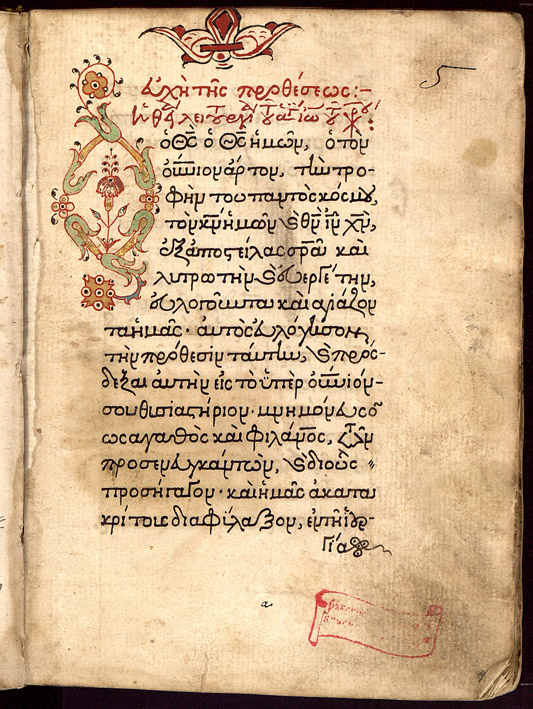 5
εὐχὴ τῆς προθέσεως:-
ὁ Θ̅ς̅ ὁ Θ̅ς̅ ἡμῶν, ὁ τὸν
οὐνιον ἄρτον, τὴν τρο-
φὴν τοῦ παντὸς κόσμου,
τὸν κ̅ν̅ ἡμῶν ϗ θ̅ν̅ ι̅ν̅ χ̅ν̅,
ἐξαποστείλας σρ̅α καὶ
λυτρωτὴν ϗ εὐεργέτην,
εὐλογοῦντα καὶ ἁγιάζον
τα ἡμᾶς· αὐτὸς εὐλόγησον
τὴν πρόθεσιν ταύτην, ϗ πρόσ-
δεξαι αὐτὴν εἰς τὸ ὑπὲρ οὐνιόν-
σου θυσιαστήριον· μνημόνευσο
ὡς ἀγαθὸς καὶ φιλάνος, τῶν
προσενεγκάντων, ϗ δι οὓς
προσήγαγον· καὶ ἡμᾶς ἀκατα
κρίτους διαφύλαξον, ἐν τῇ ἱερ-
γία
α